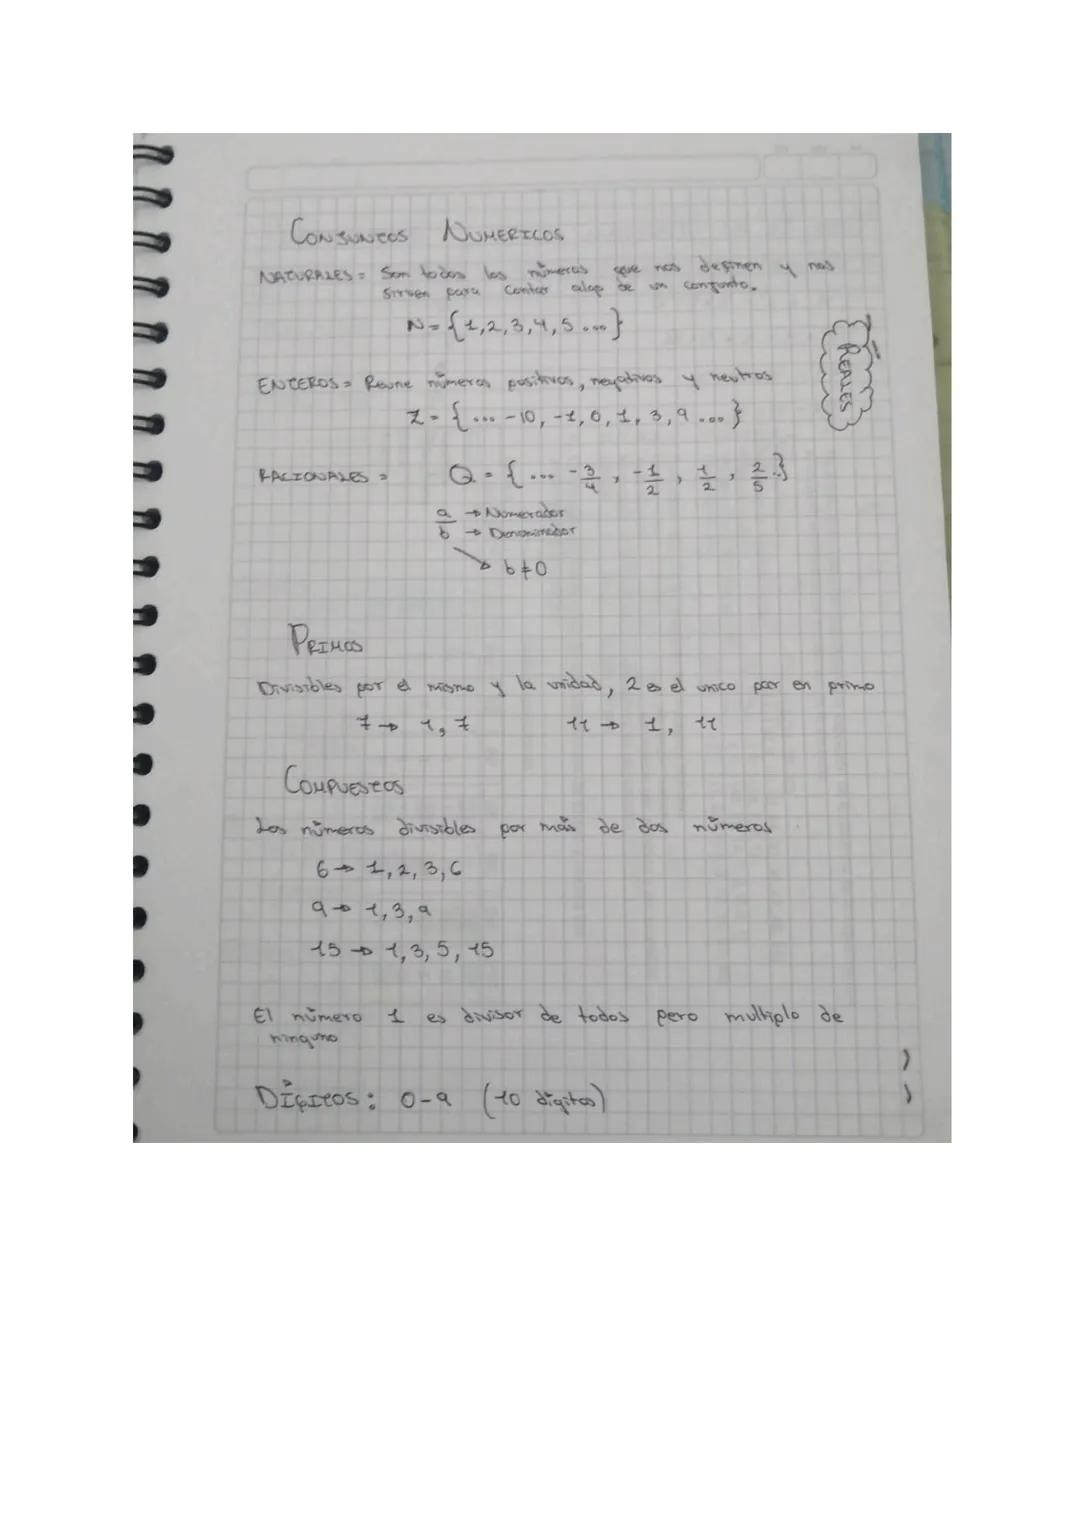 CONJUNTOS NUMERICOS
NATURALES = Son todos los números que nos definen y nos
sirven para contar algo de un conjunto.
N = {1,2,3,4,5 ...}
REALES
ENTEROS = Reune números positivos, negativos y neutros
Z = {... -10, -1, 0, 1, 3, 9 ...}
RACIONALES = Q = {... -3/4, -1/2, 1/2, 2/5 ..}
a → Numerador
b → Denominador
b ≠ 0
PRIMOS
Divisibles por el mismo y la unidad, 2 es el unico par en primo
7 → 1, 7 11 → 1, 11
COMPUESTOS
Los números divisibles por más de dos números
6 → 1, 2, 3, 6
9 → 1, 3, 9
15 → 1, 3, 5, 15
El número 1 es divisor de todos pero multiplo de
ninguno
DÍGITOS: 0-9 (10 dígitos)